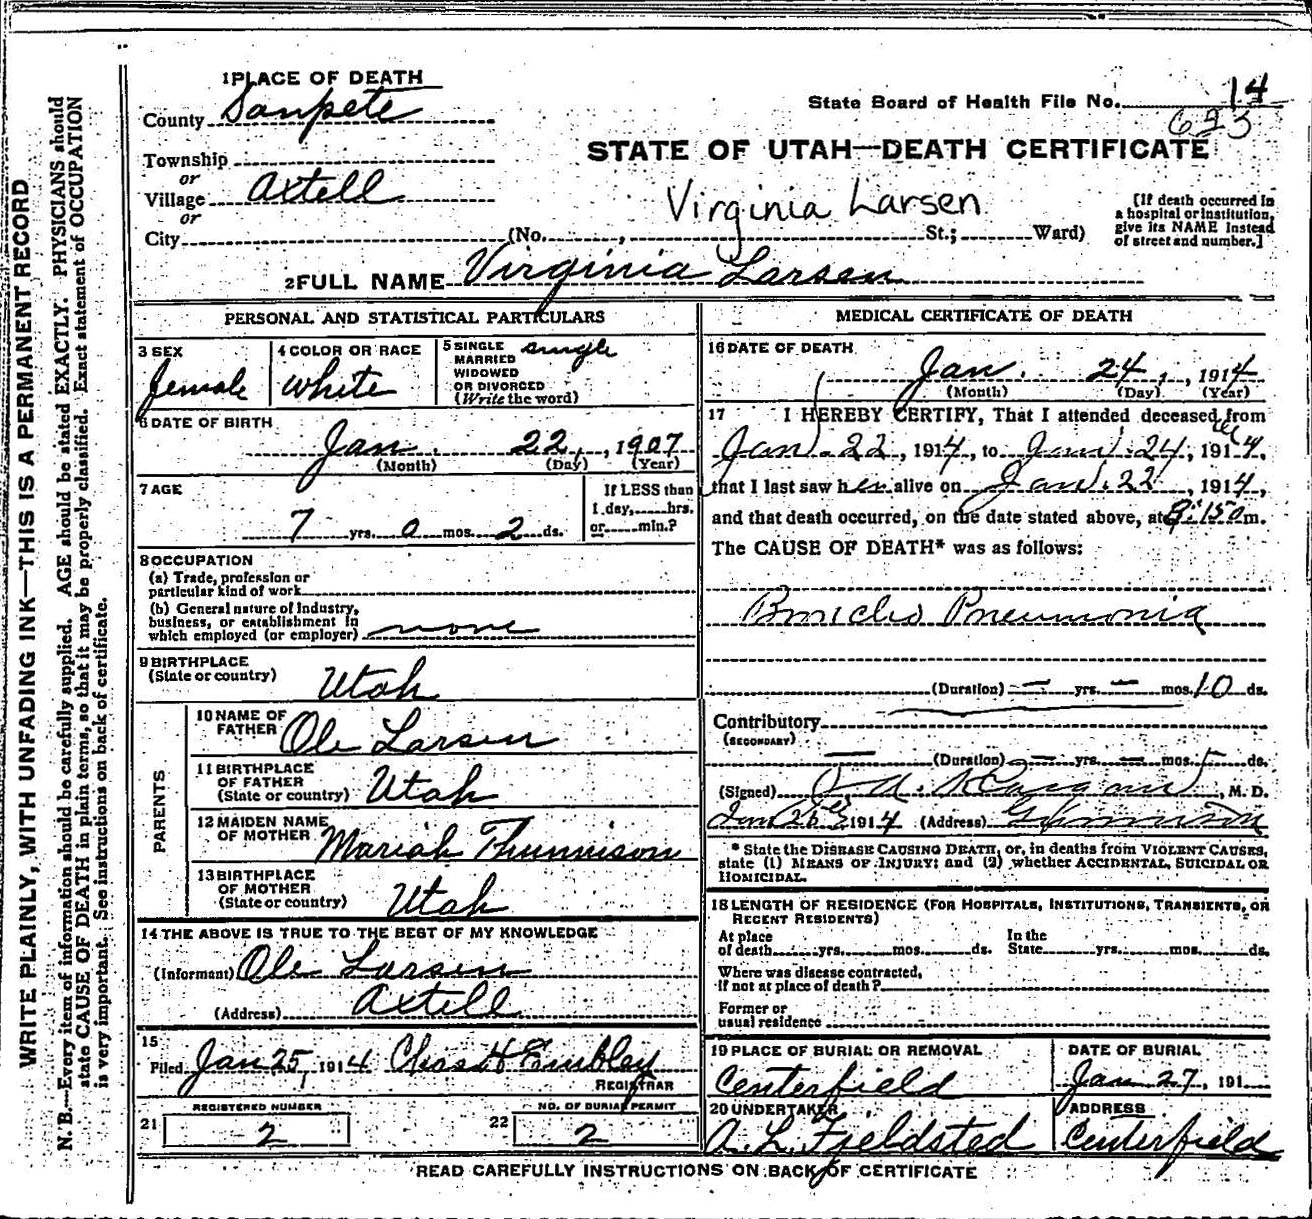 WRITE PLAINLY, WITH UNFADING INK—THIS IS A PERMANENT RECORD
N. B.—Every item of information should be carefully supplied. AGE should be stated EXACTLY. PHYSICIANS should
state CAUSE OF DEATH in plain terms, so that it may be properly classified. Exact statement of OCCUPATION
is very important. See instructions on back of certificate.
1 PLACE OF DEATH
County Sanpete
Township
or
Village Axtell
or
City (No. , St.; Ward)
State Board of Health File No. 14
623
STATE OF UTAH—DEATH CERTIFICATE
Virginia Larsen
[If death occurred in
a hospital or institution,
give its NAME instead
of street and number.]
2 FULL NAME Virginia Larsen
PERSONAL AND STATISTICAL PARTICULARS
3 SEX
female
4 COLOR OR RACE
white
5 SINGLE single
MARRIED
WIDOWED
OR DIVORCED
(Write the word)
6 DATE OF BIRTH
Jan. 22, , 1907
(Month) (Day) (Year)
7 AGE
7 yrs. 0 mos. 2 ds.
If LESS than
1 day, hrs.
or min.?
8 OCCUPATION
(a) Trade, profession or
particular kind of work
(b) General nature of Industry,
business, or establishment in
which employed (or employer) none
9 BIRTHPLACE
(State or country) Utah
PARENTS
10 NAME OF
FATHER Ole Larsen
11 BIRTHPLACE
OF FATHER
(State or country) Utah
12 MAIDEN NAME
OF MOTHER Mariah
13 BIRTHPLACE
OF MOTHER
(State or country) Utah
14 THE ABOVE IS TRUE TO THE BEST OF MY KNOWLEDGE
(Informant) Ole Larsen
(Address) Axtell
15
Filed Jan 25, 1914 Chas H Embley
REGISTRAR
REGISTERED NUMBER
21 2
NO. OF BURIAL PERMIT
22 2
MEDICAL CERTIFICATE OF DEATH
16 DATE OF DEATH
Jan. 24, , 1914
(Month) (Day) (Year)
17 I HEREBY CERTIFY, That I attended deceased from
Jan. 22, 1914, to Jan. 24, 1914,
that I last saw her alive on Jan. 22, 1914,
and that death occurred, on the date stated above, at m.
The CAUSE OF DEATH* was as follows:
Broncho Pneumonia
(Duration) — yrs. — mos. 10 ds.
Contributory
(SECONDARY)
(Duration) — yrs. — mos. ds.
(Signed) , M. D.
Jan 26 1914 (Address)
* State the DISEASE CAUSING DEATH, or, in deaths from VIOLENT CAUSES,
state (1) MEANS OF INJURY; and (2) whether ACCIDENTAL, SUICIDAL OR
HOMICIDAL.
18 LENGTH OF RESIDENCE (FOR HOSPITALS, INSTITUTIONS, TRANSIENTS, OR
RECENT RESIDENTS)
At place In the
of death yrs. mos. ds. State yrs. mos. ds.
Where was disease contracted,
if not at place of death?
Former or
usual residence
19 PLACE OF BURIAL OR REMOVAL
Centerfield
DATE OF BURIAL
Jan 27, 191
20 UNDERTAKER
A. L. Fjeldsted
ADDRESS
Centerfield
READ CAREFULLY INSTRUCTIONS ON BACK OF CERTIFICATE